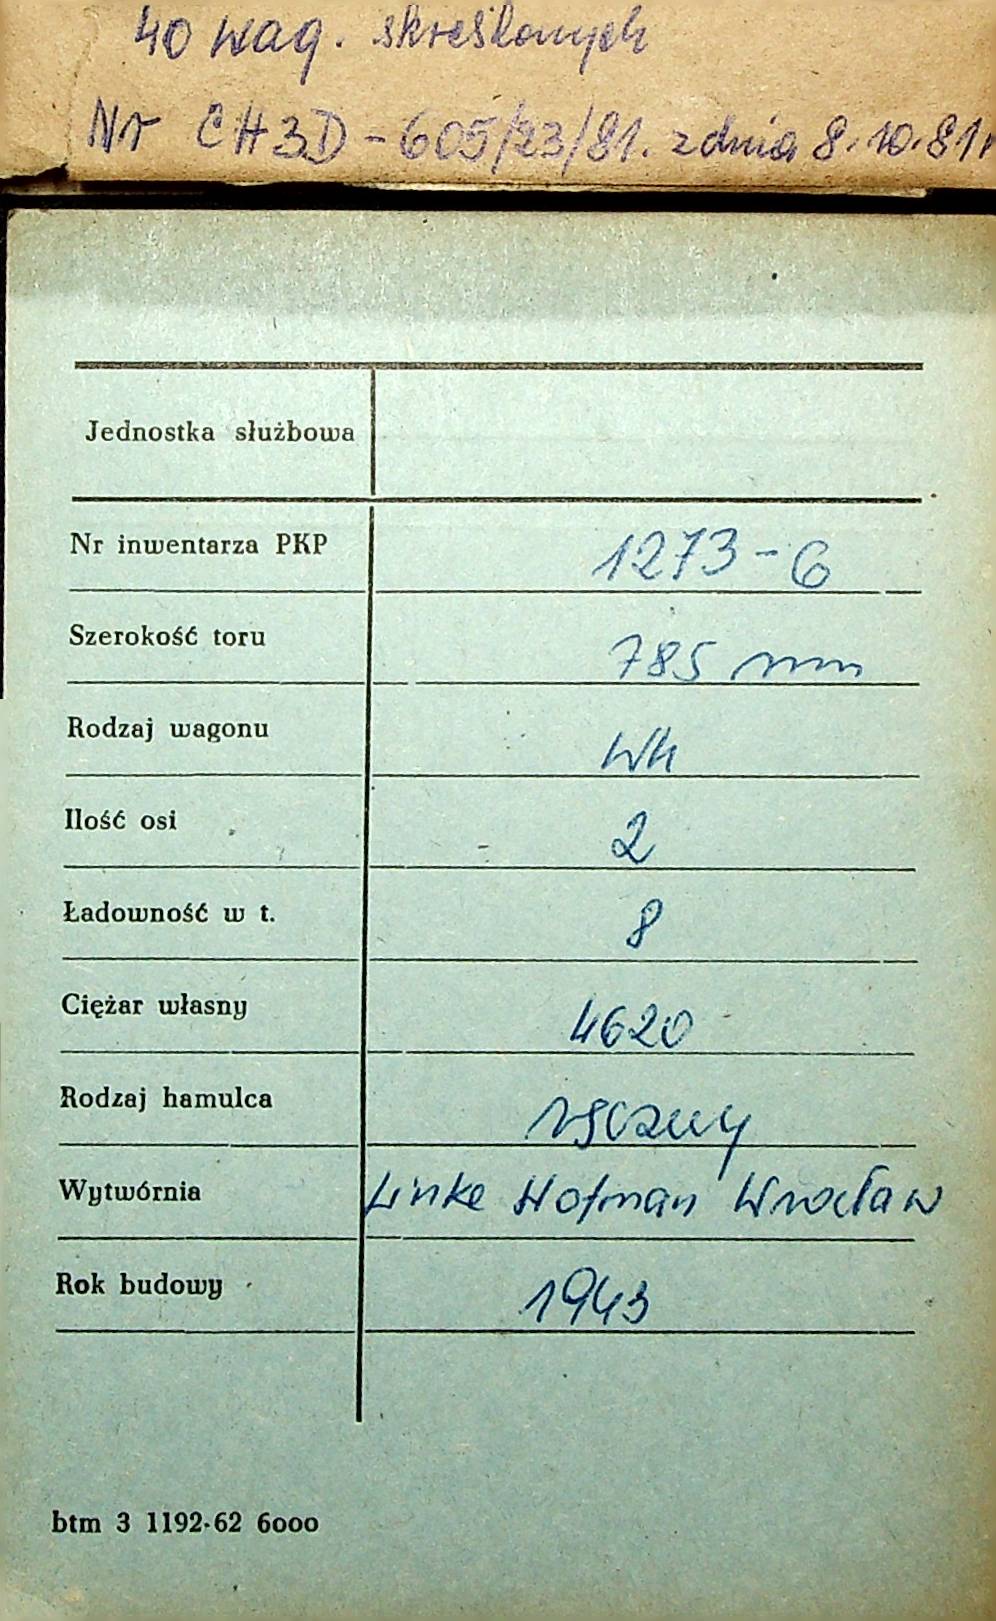 40 wag. skreślonych
Nr CH3D-605/23/81. z dnia 8.10.81r
Jednostka służbowa
Nr inwentarza PKP 1273-6
Szerokość toru 785 mm
Rodzaj wagonu Wh
Ilość osi 2
Ładowność w t. 8
Ciężar własny 4620
Rodzaj hamulca ręczny
Wytwórnia Linke Hofman Wrocław
Rok budowy 1943
btm 3 1192-62 6000